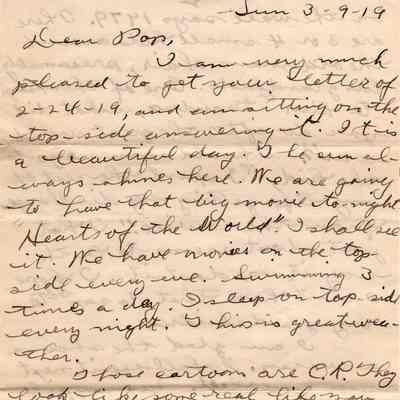 Sun 3-9-19
Dear Pop,
I am very much
pleased to get your letter of
2-24-19, and am sitting on the
top-side answering it. It is
a beautiful day. The sun al-
ways shines here. We are going
to have that big movie to-night
"Hearts of the World". I shall see
it. We have movies on the top
side every eve. Swimming 3
times a day. I sleep on top-side
every night. This is great wea-
ther.
Those cartoons are C.P. They
look like some real like